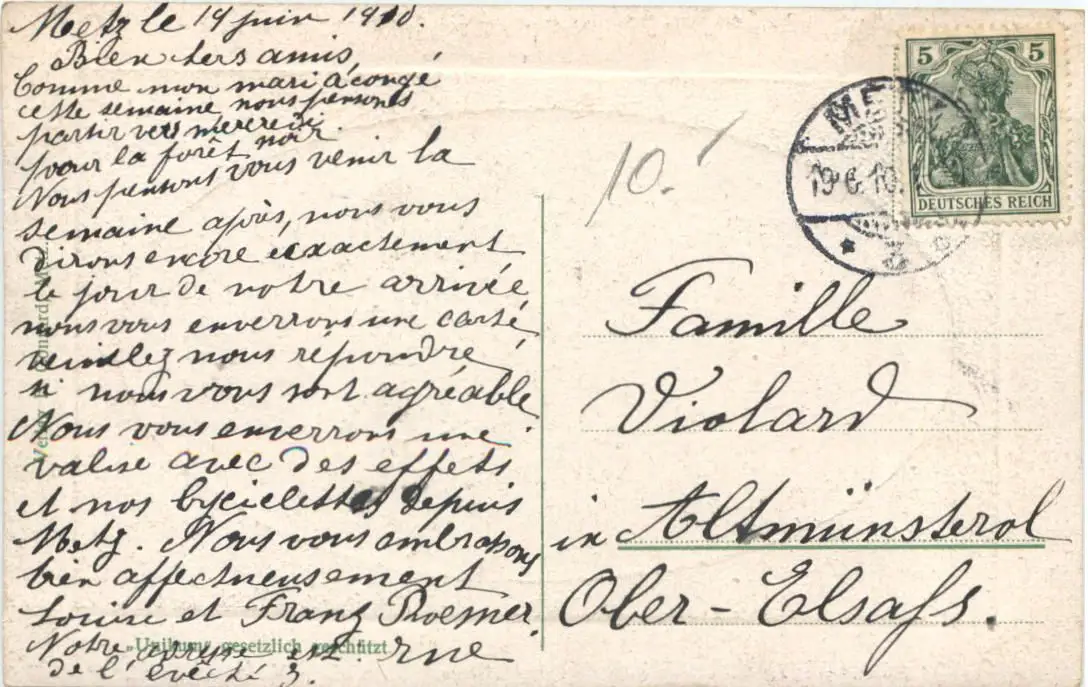 Metz le 19 juin 1910.
Bien chers amis,
Comme mon mari a congé
cette semaine nous pensons
partir vers mercredi
pour la forêt noir.
Nous pensons vous venir la
semaine après, nous vous
dirons encore exactement
le jour de notre arrivée
nous vous enverrons une carte
veuillez nous répondre
si nous vous sont agréable
Nous vous enverrons une
valise avec des effets
et nos byciclettes depuis
Metz. Nous vous embrassons
bien affectueusement
Louise et Franz Roemer.
Notre est rue
de l'évêché 3.
"Unikum" gesetzlich geschützt
Verlag
10.
METZ
19.6.10.
5 5
DEUTSCHES REICH
Famille
Violard
in Altmünsterol
Ober-Elsaß.